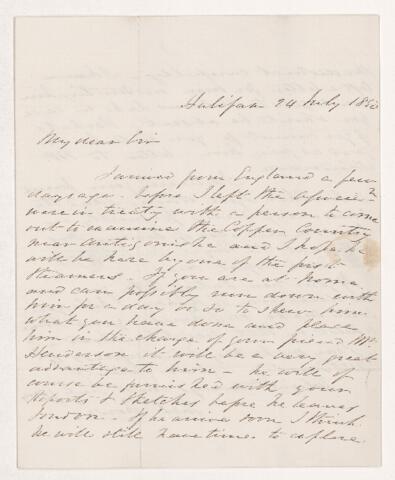 Halifax 24 July 18
My dear Sir
I arrived from England a few
days ago. before I left the
were in treaty with a person to come
out to examine the Copper Country
near Antigonishe and I hope he
will be here by one of the first
Steamers. If you are at home
and can possibly run down with
him for a day or so to shew him
what you have done and place
him in the charge of your friend Mr
Henderson it will be a very great
advantage to him - he will of
course be furnished with your
Reports & Sketches before he leaves
London. If he arrives soon I think
he will still have time to explore